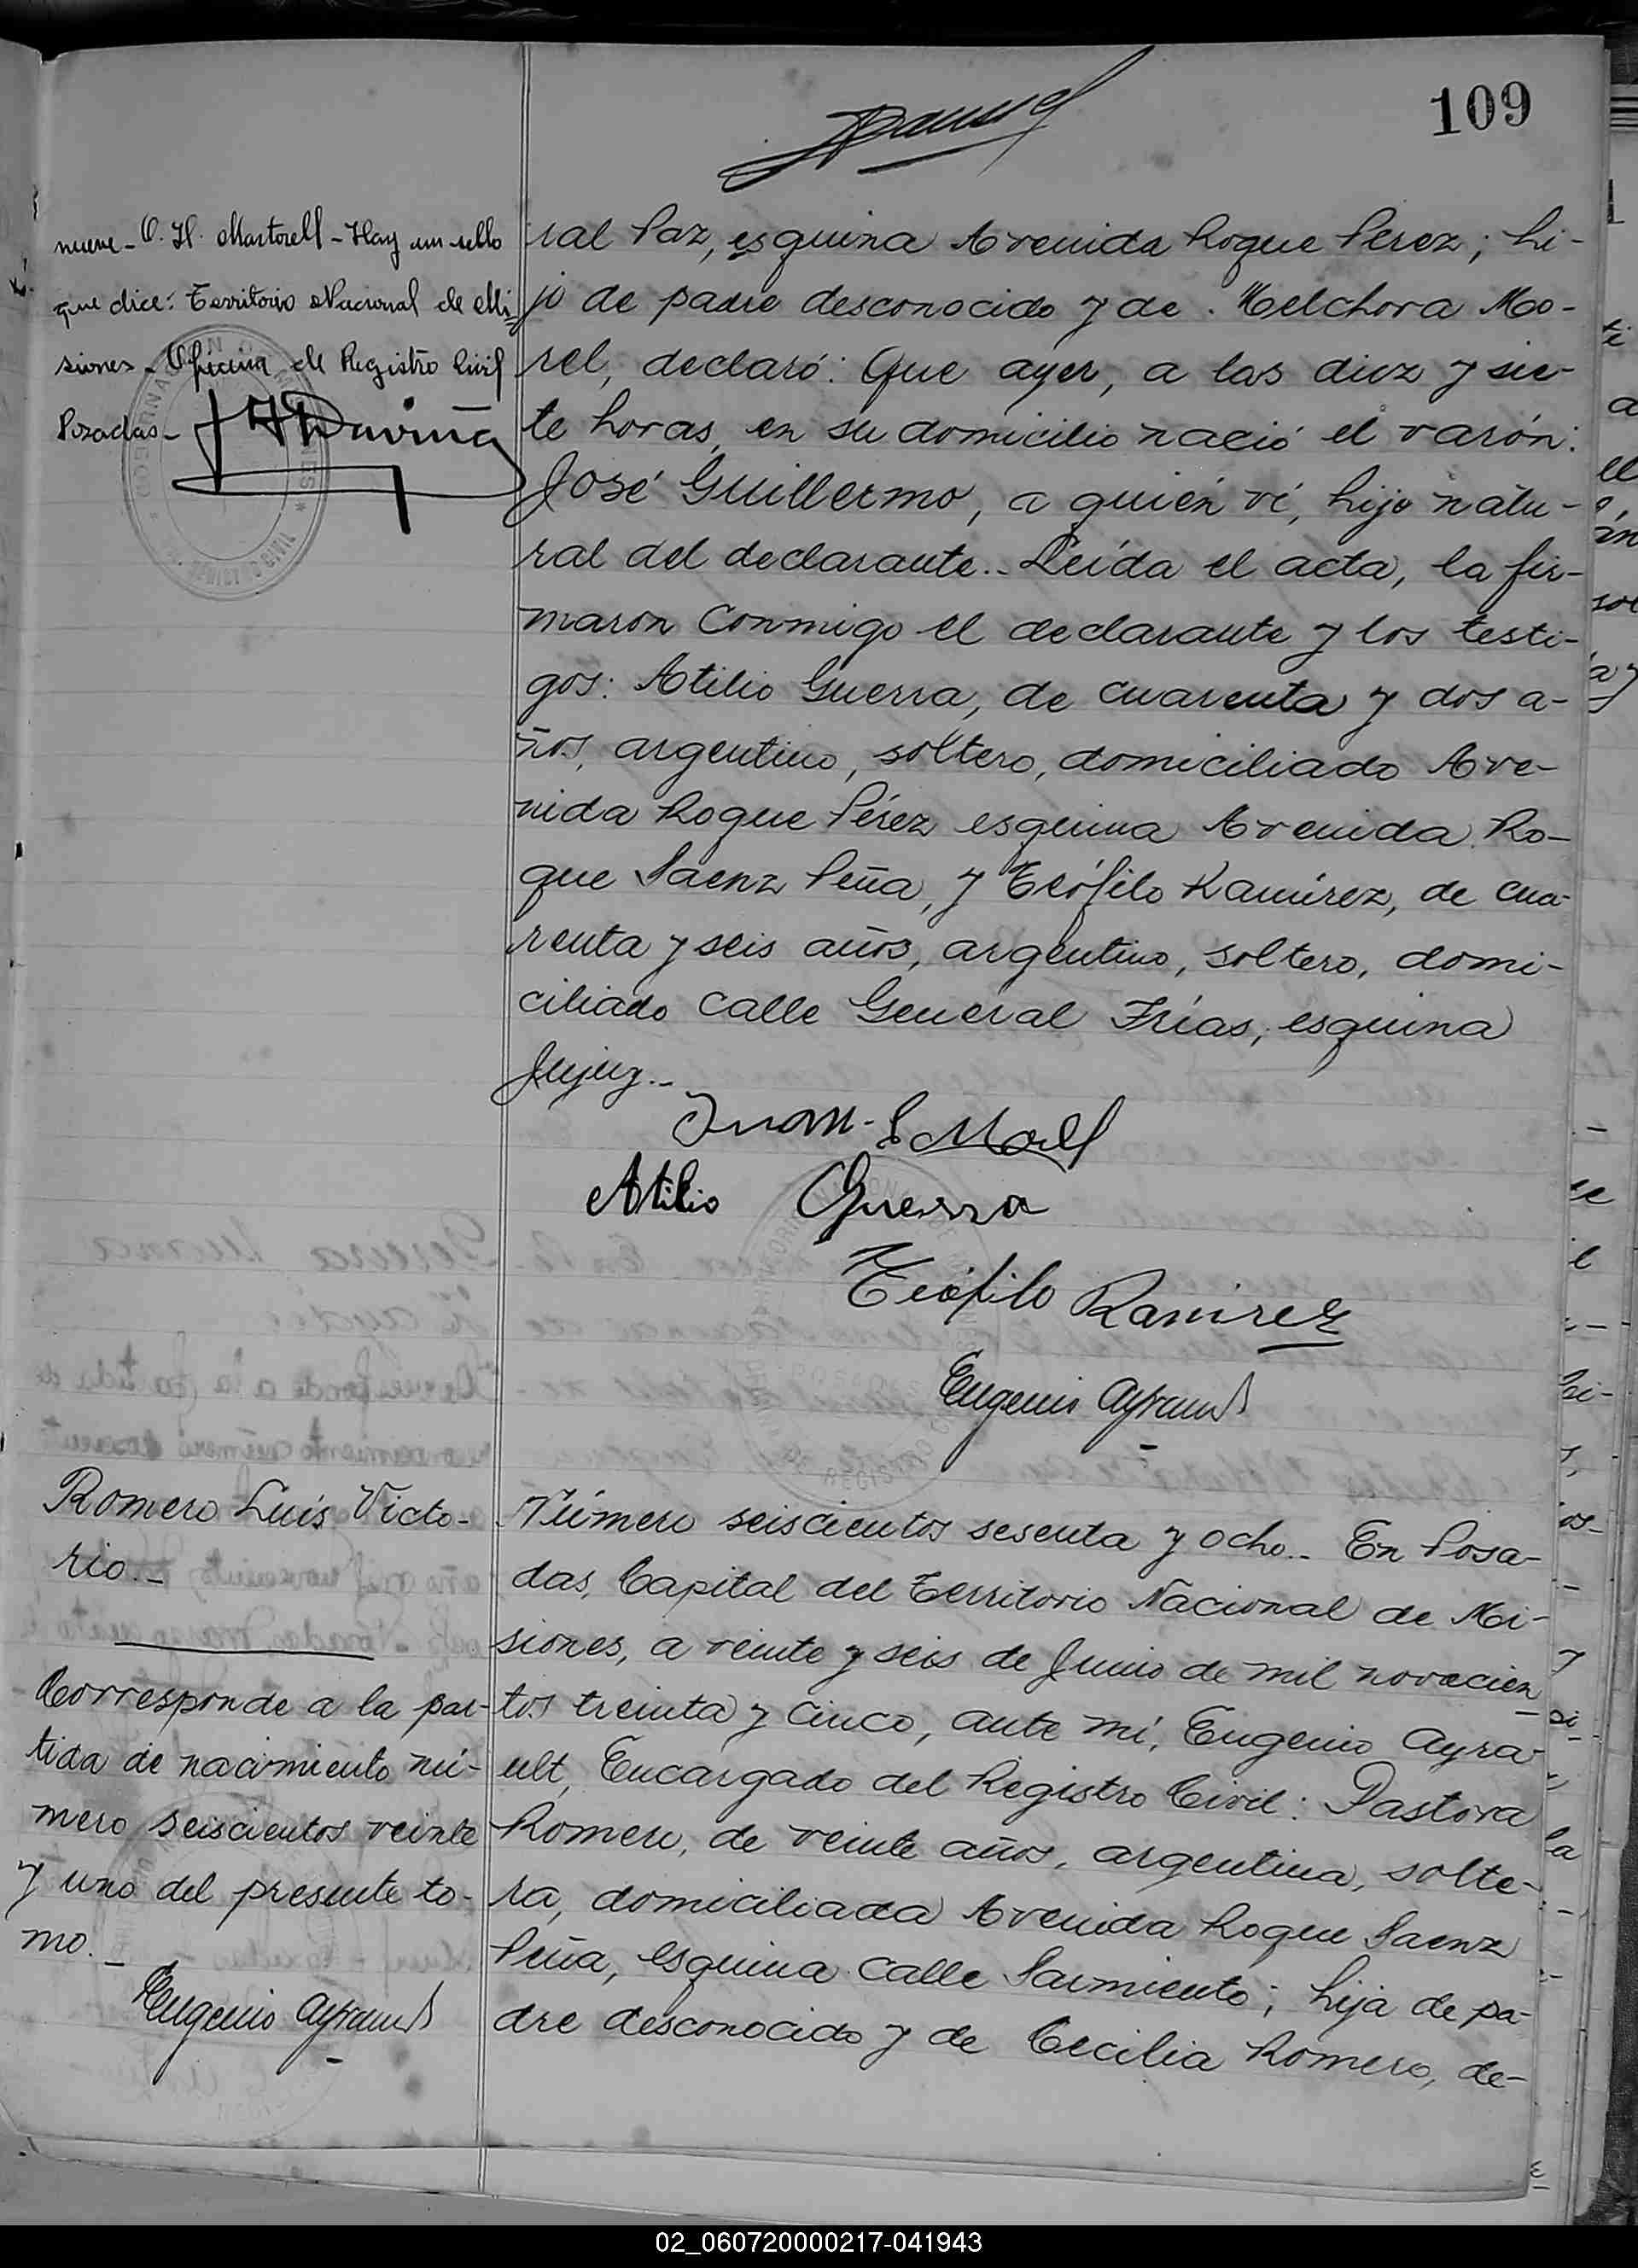 109
nueve - O. H. Martorell - Hay un sello
que dice: Territorio Nacional de Mi-
siones - Oficina del Registro Civil
Posadas -
ral Paz, esquina Avenida Roque Perez; hi-
jo de padre desconocido y de Melchora Mo-
rel, declaró: Que ayer, a las diez y sie-
te horas, en su domicilio nació el varón:
José Guillermo, a quién ví, hijo natu-
ral del declarante.- Leída el acta, la fir-
maron conmigo el declarante y los testi-
gos: Atilio Guerra, de cuarenta y dos a-
ños, argentino, soltero, domiciliado Ave-
nida Roque Pérez esquina Avenida Ro-
que Saenz Peña, y Teófilo Ramírez, de cua-
renta y seis años, argentino, soltero, domi-
ciliado calle General Frías, esquina
Jujuy.-
Juan
Atilio Guerra
Teófilo Ramirez
Eugenio Ayrault
Romero Luís Victo-
rio.-
Corresponde a la par-
tida de nacimiento nú-
mero seiscientos veinte
y uno del presente to-
mo.-
Eugenio Ayrault
Número seiscientos sesenta y ocho.- En Posa-
das, Capital del Territorio Nacional de Mi-
siones, a veinte y seis de Junio de mil novecien
tos treinta y cinco, ante mí, Eugenio Ayra-
ult, Encargado del Registro Civil: Pastora
Romero, de veinte años, argentina, solte-
ra, domiciliada Avenida Roque Saenz
Peña, esquina calle Sarmiento; hija de pa-
dre desconocido y de Cecilia Romero, de-
02_060720000217-041943